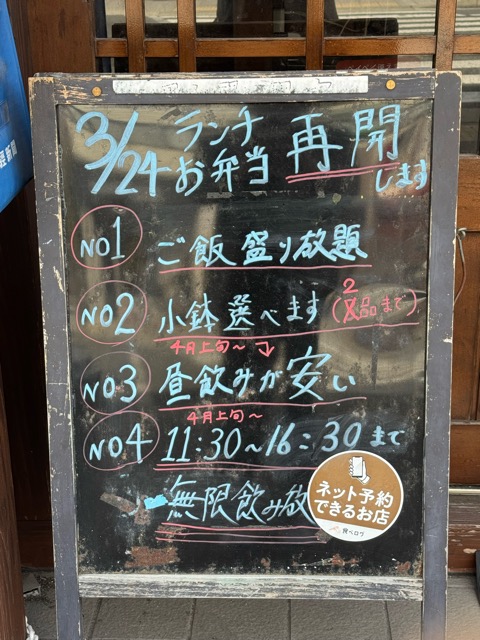 3/24 ランチ お弁当 再開します
NO1 ご飯盛り放題
NO2 小鉢選べます(2品まで)
4月上旬~
NO3 昼飲みが安い
4月上旬~
NO4 11:30~16:30まで
無限飲み放
ネット予約
できるお店
食べログ